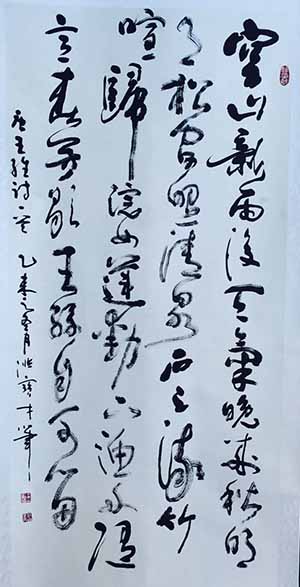 空山新雨後天氣晚來秋明
月松間照清泉石上流竹
喧歸浣女蓮動下漁舟隨
意春芳歇王孫自可留
唐王維詩一首 乙未